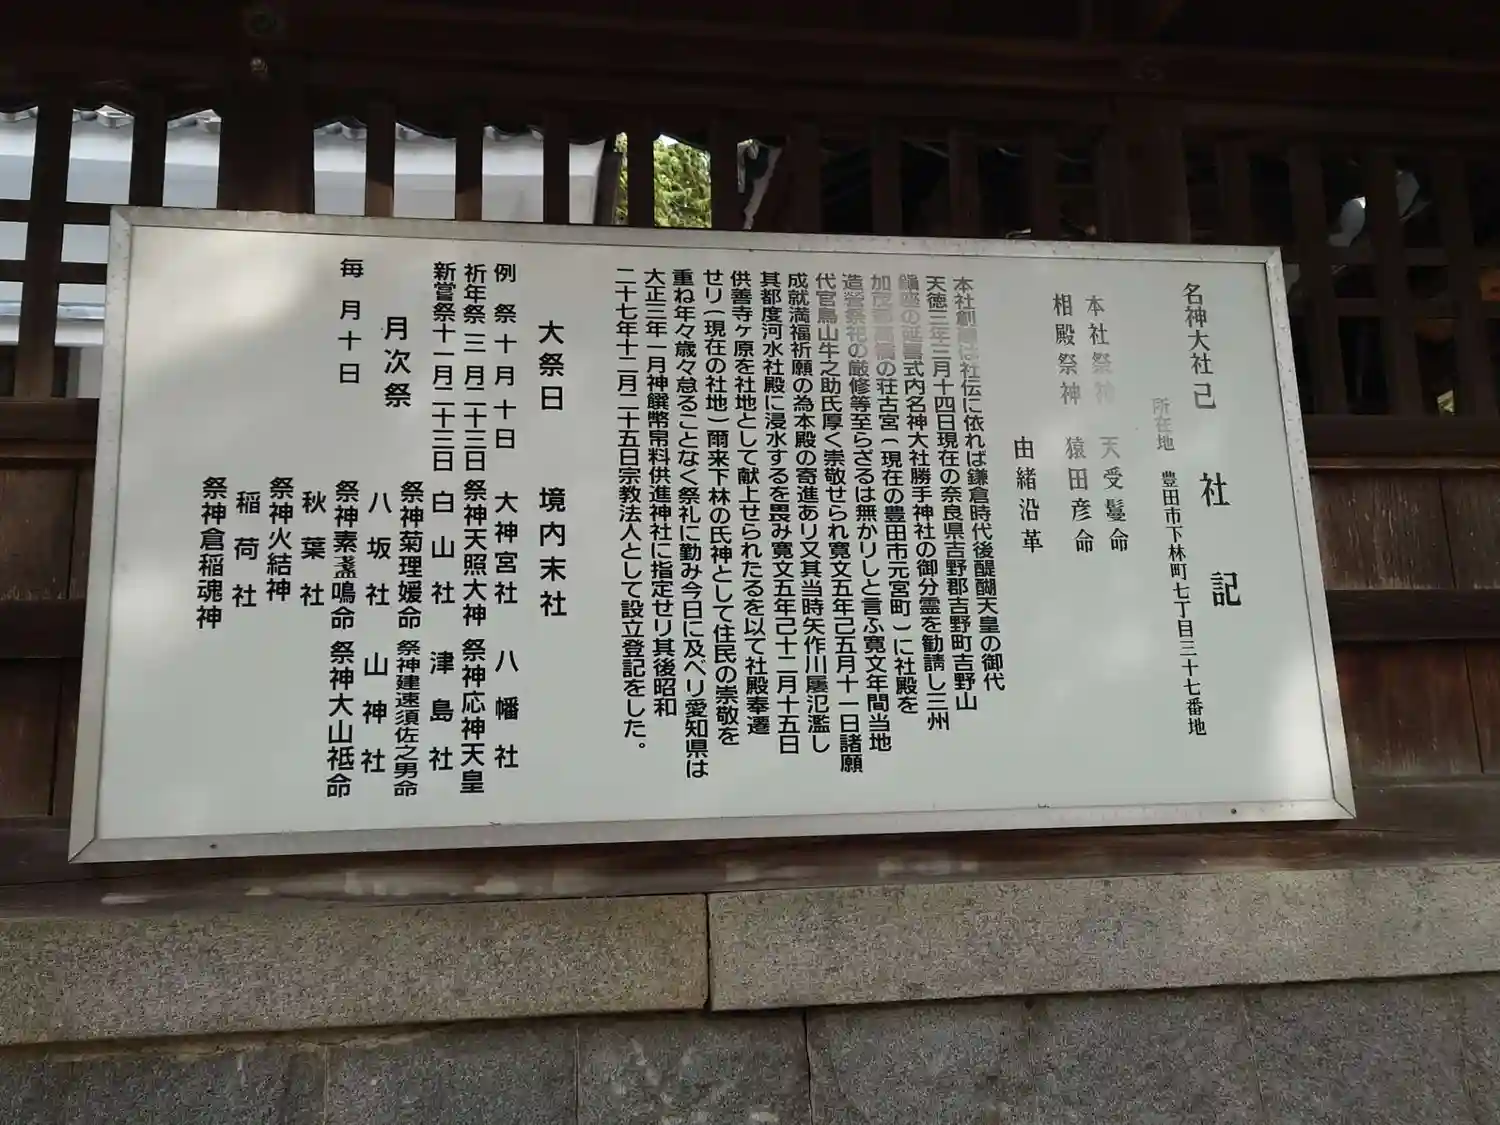 名神大社己
社記
所在地 豊田市下林町七丁目三十七番地
本社祭神 天受鬘命
相殿祭神 猿田彦命
由緒沿革
本社創は社伝に依れば鎌倉時代後醍醐天皇の御代
天徳三年三月十四日現在の奈良県吉野郡吉野町吉野山
鎭座の延喜式内名神大社勝手神社の御分霊を勧請し三州
加茂郡の荘古宮(現在の豊田市元宮町)に社殿を
造營祭祀の厳修等至らざるは無かりしと言ふ寛文年間当地
代官鳥山牛之助氏厚く崇敬せられ寛文五年己五月十一日諸願
成就満福祈願の為本殿の寄進あり又其当時矢作川屡氾濫し
其都度河水社殿に浸水するを畏み寛文五年己十二月十五日
供善寺ヶ原を社地として献上せられたるを以て社殿奉遷
せり(現在の社地)爾来下林の氏神として住民の崇敬を
重ね年々歳々怠ることなく祭礼に勤み今日に及べり愛知県は
大正三年一月神饌幣帛料供進神社に指定せり其後昭和
二十七年十二月二十五日宗教法人として設立登記をした。
大祭日
例祭十月十日
祈年祭三月二十三日
新嘗祭十一月二十三日
月次祭
毎月十日
境内末社
大神宮社 八幡社
祭神天照大神 祭神応神天皇
白山社 津島社
祭神菊理媛命 祭神建速須佐之男命
八坂社 山神社
祭神素盞鳴命 祭神大山祇命
秋葉社
祭神火結神
稲荷社
祭神倉稲魂神